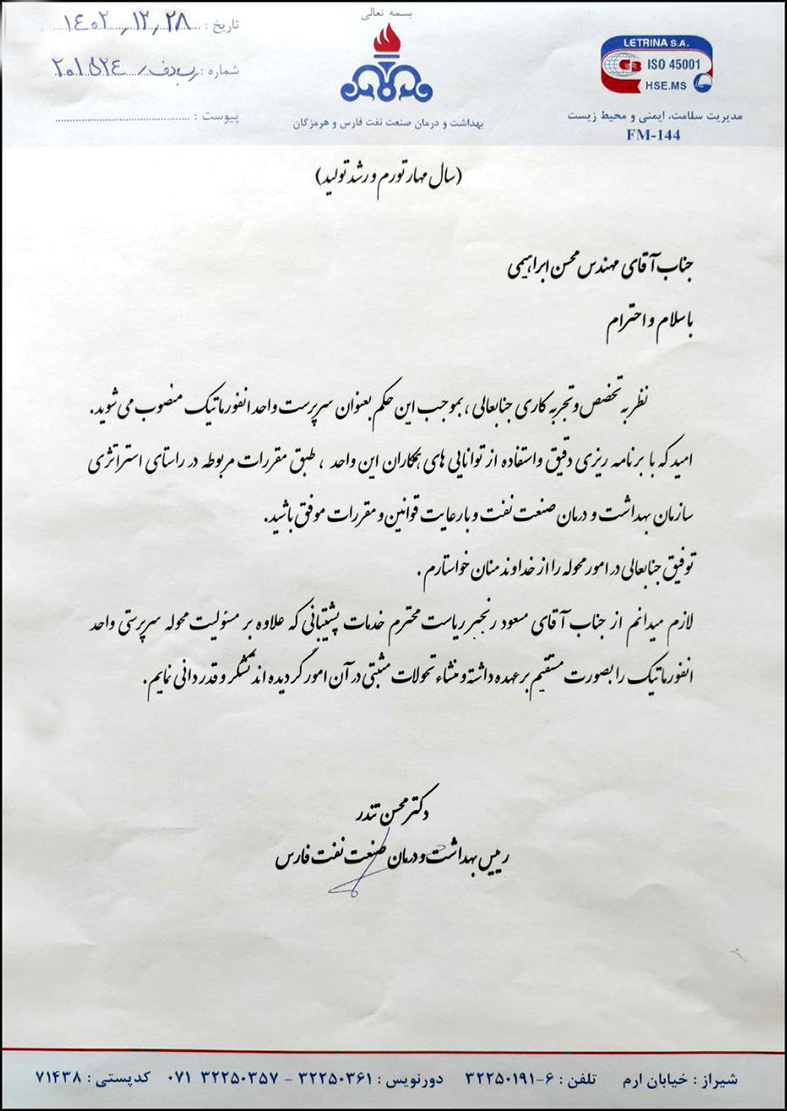 بسمه تعالی
تاریخ : ۱۴۰۲,۱۲,۲۸
شماره :
پیوست :
بهداشت و درمان صنعت نفت فارس و هرمزگان
LETRINA S.A.
ISO 45001
HSE.MS
مدیریت سلامت، ایمنی و محیط زیست
FM-144
(سال مهار تورم و رشد تولید)
جناب آقای مهندس محسن ابراهیمی
با سلام و احترام
نظر به تخصص و تجربه کاری جنابعالی ، بموجب این حکم بعنوان سرپرست واحد انفورماتیک منصوب می شوید.
امید که با برنامه ریزی دقیق واستفاده از توانایی های همکاران این واحد ، طبق مقررات مربوطه در راستای استراتژی
سازمان بهداشت و درمان صنعت نفت و بارعایت قوانین و مقررات موفق باشید.
توفیق جنابعالی در امور محوله را از خداوند منان خواستارم .
لازم میدانم از جناب آقای مسعود رنجبر ریاست محترم خدمات پشتیبانی که علاوه بر مسئولیت محوله سرپرستی واحد
انفورماتیک را بصورت مستقیم برعهده داشته و منشاء تحولات مثبتی در آن امور گردیده اند تشکر و قدردانی نمایم.
دکتر محسن تندر
رییس بهداشت و درمان صنعت نفت فارس
شیراز : خیابان ارم تلفن : ۶-۳۲۲۵۰۱۹۱ دورنویس : ۳۲۲۵۰۳۶۱ - ۳۲۲۵۰۳۵۷ ۰۷۱ کدپستی : ۷۱۴۳۸